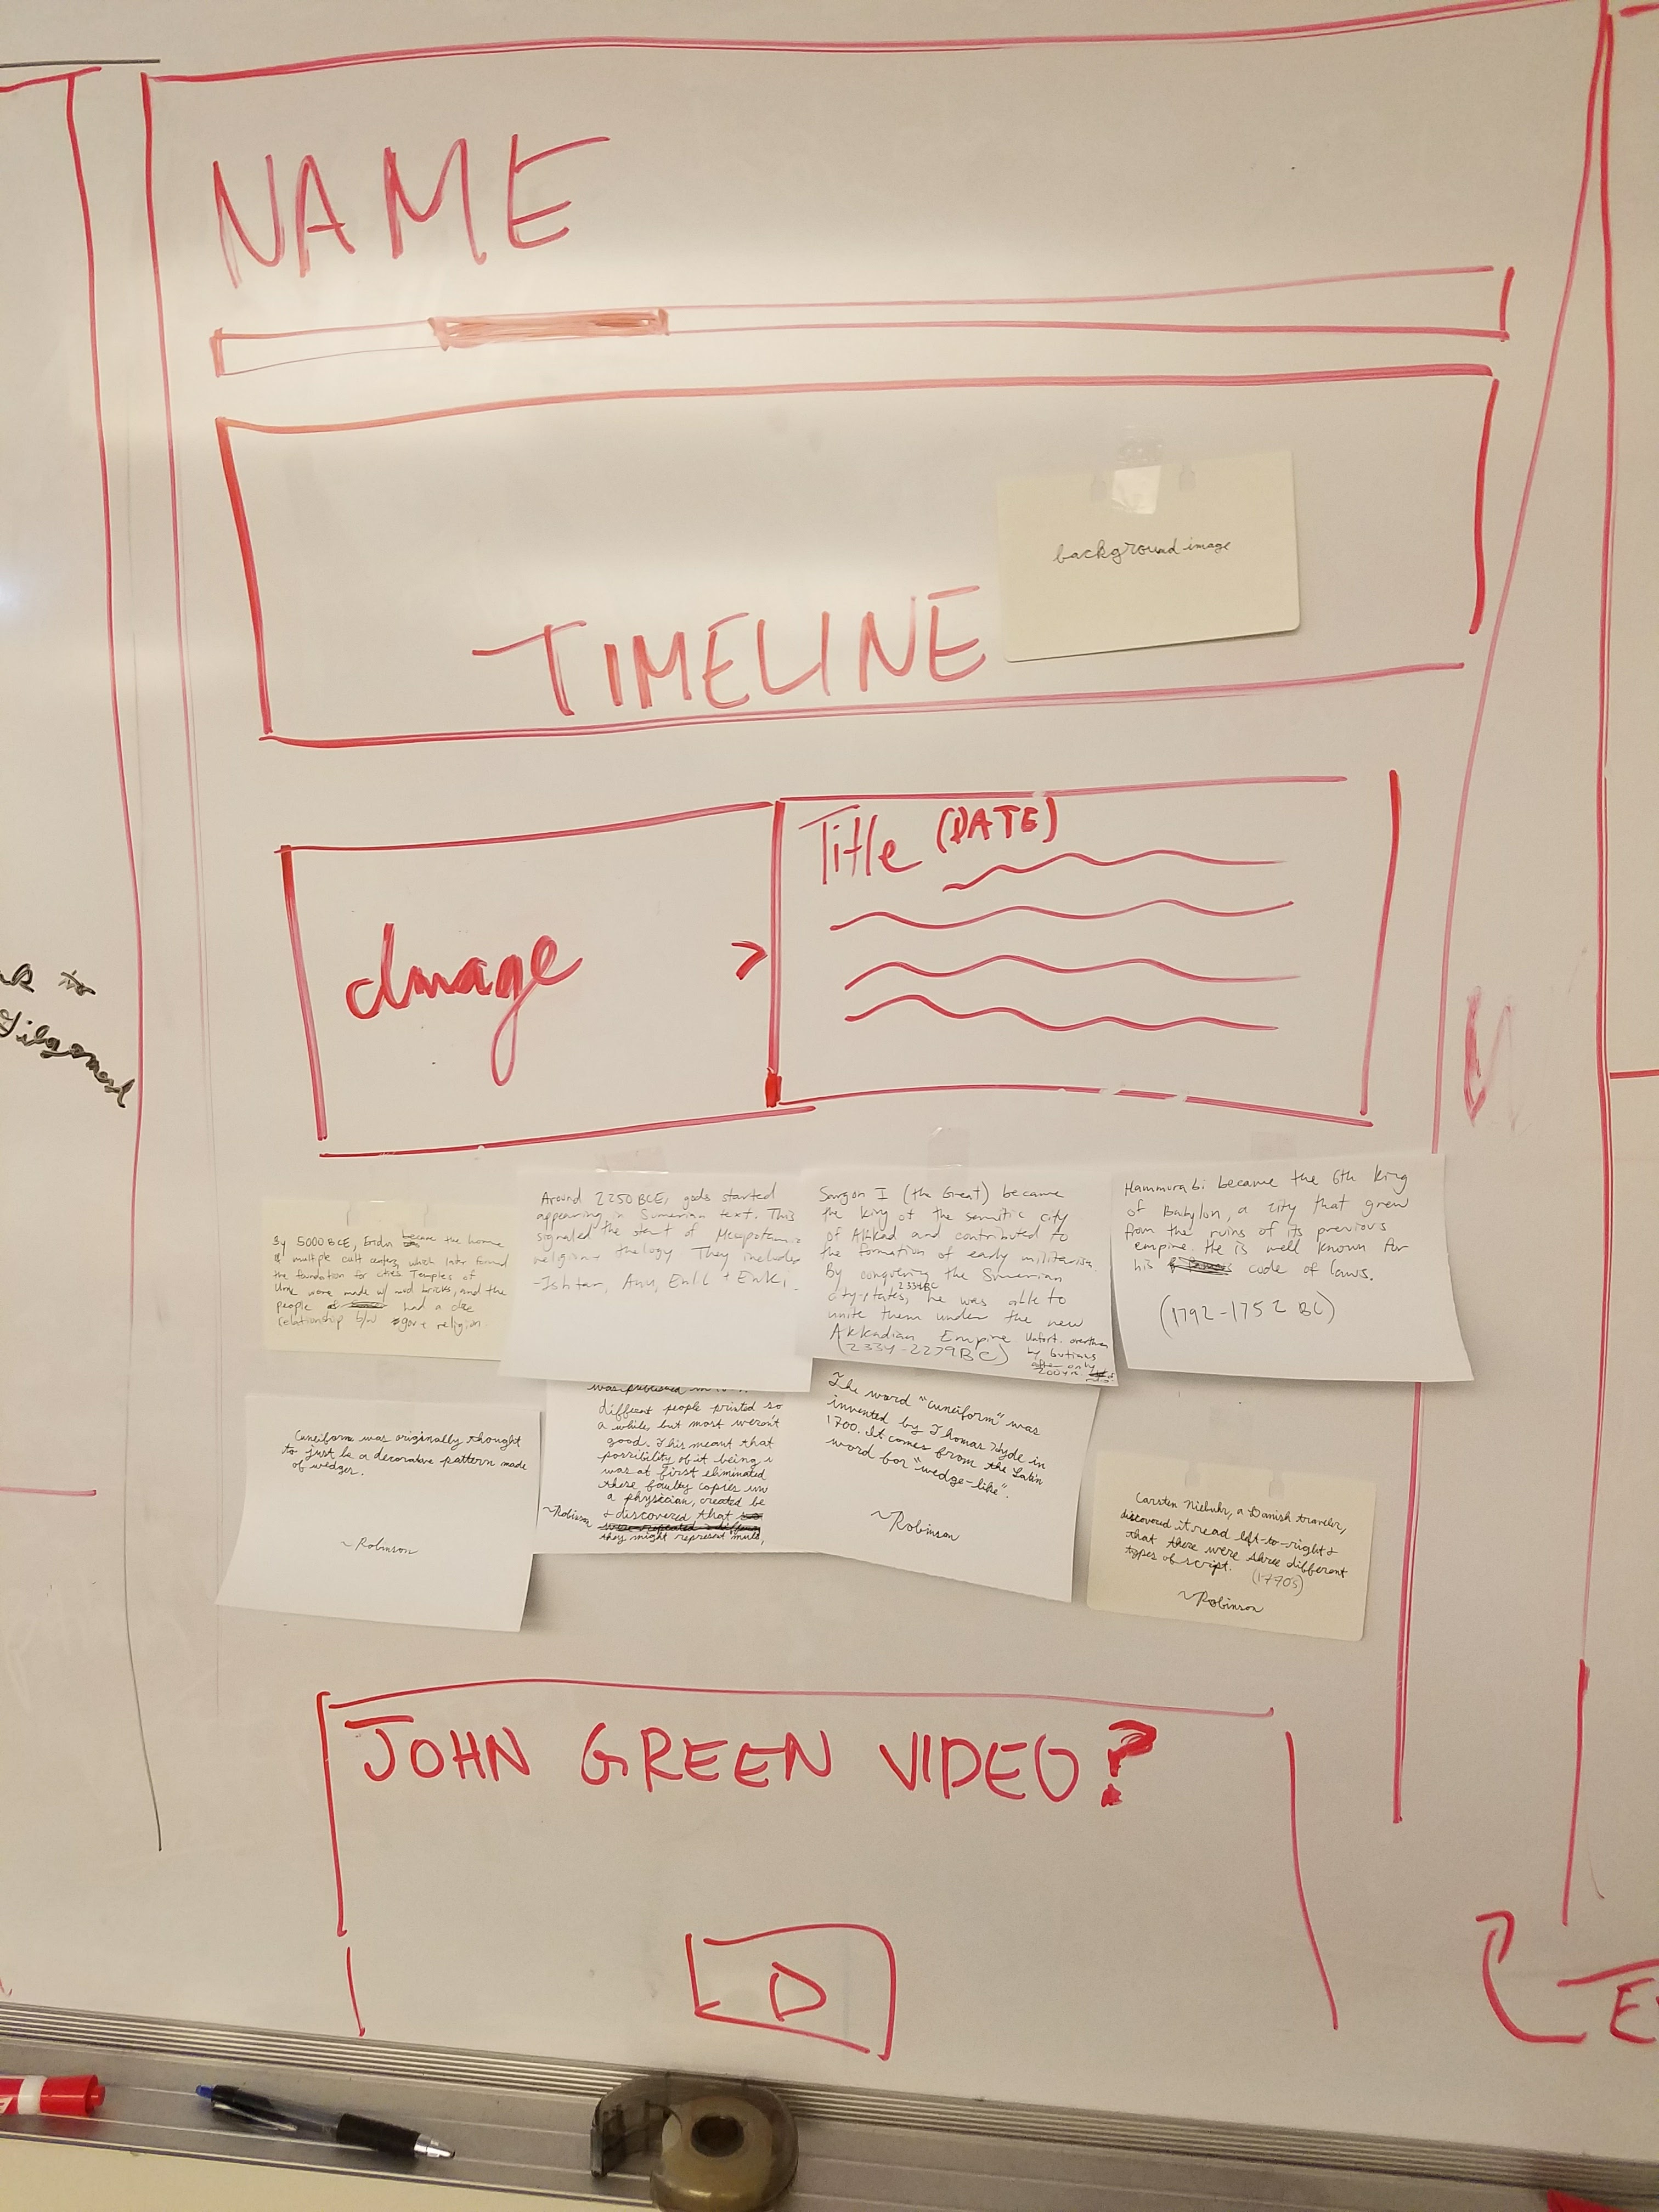 NAME
background image
TIMELINE
Image
>
Title (DATE)
to
By 5000 BCE, Eridu became the home
of multiple cult centers, which later formed
the foundation for cities. Temples of
were made w/ mud bricks, and the
people had a close
relationship b/w gov + religion
Around 2250 BCE, gods started
appearing in Sumerian text. This
signaled the start of Mesopotamia
religion + theology They includes
-Ishtar, Anu, Enlil + Enki.
Sargon I (the Great) became
the king of the semitic city
of Akkad and contributed to
the formation of early militarism.
By conquering the Sumerian
city-states, 2334BC he was able to
unite them under the new
Akkadian Empire Unfort. overthrown
(2334-2279BC) by Gutians
after only
200yr
Hammurabi became the 6th king
of Babylon, a city that grew
from the ruins of its previous
empire. He is well known for
his code of laws.
(1792-1752 BC)
Cuneiform was originally thought
to just be a decorative pattern made
of wedges.
~Robinson
was published in
different people printed so
a while, but most weren't
good. This meant that
possibility of it being
was at first eliminated
these faulty copies
a physician, created
+ discovered that
they might represent
~Robinson
The word "cuneiform" was
invented by Thomas Hyde in
1700. It comes from the Latin
word for "wedge-like".
~Robinson
Carsten Niebuhr, a Danish traveler,
discovered it read left-to-right +
that there were three different
types of script. (1770s)
~Robinson
JOHN GREEN VIDEO?